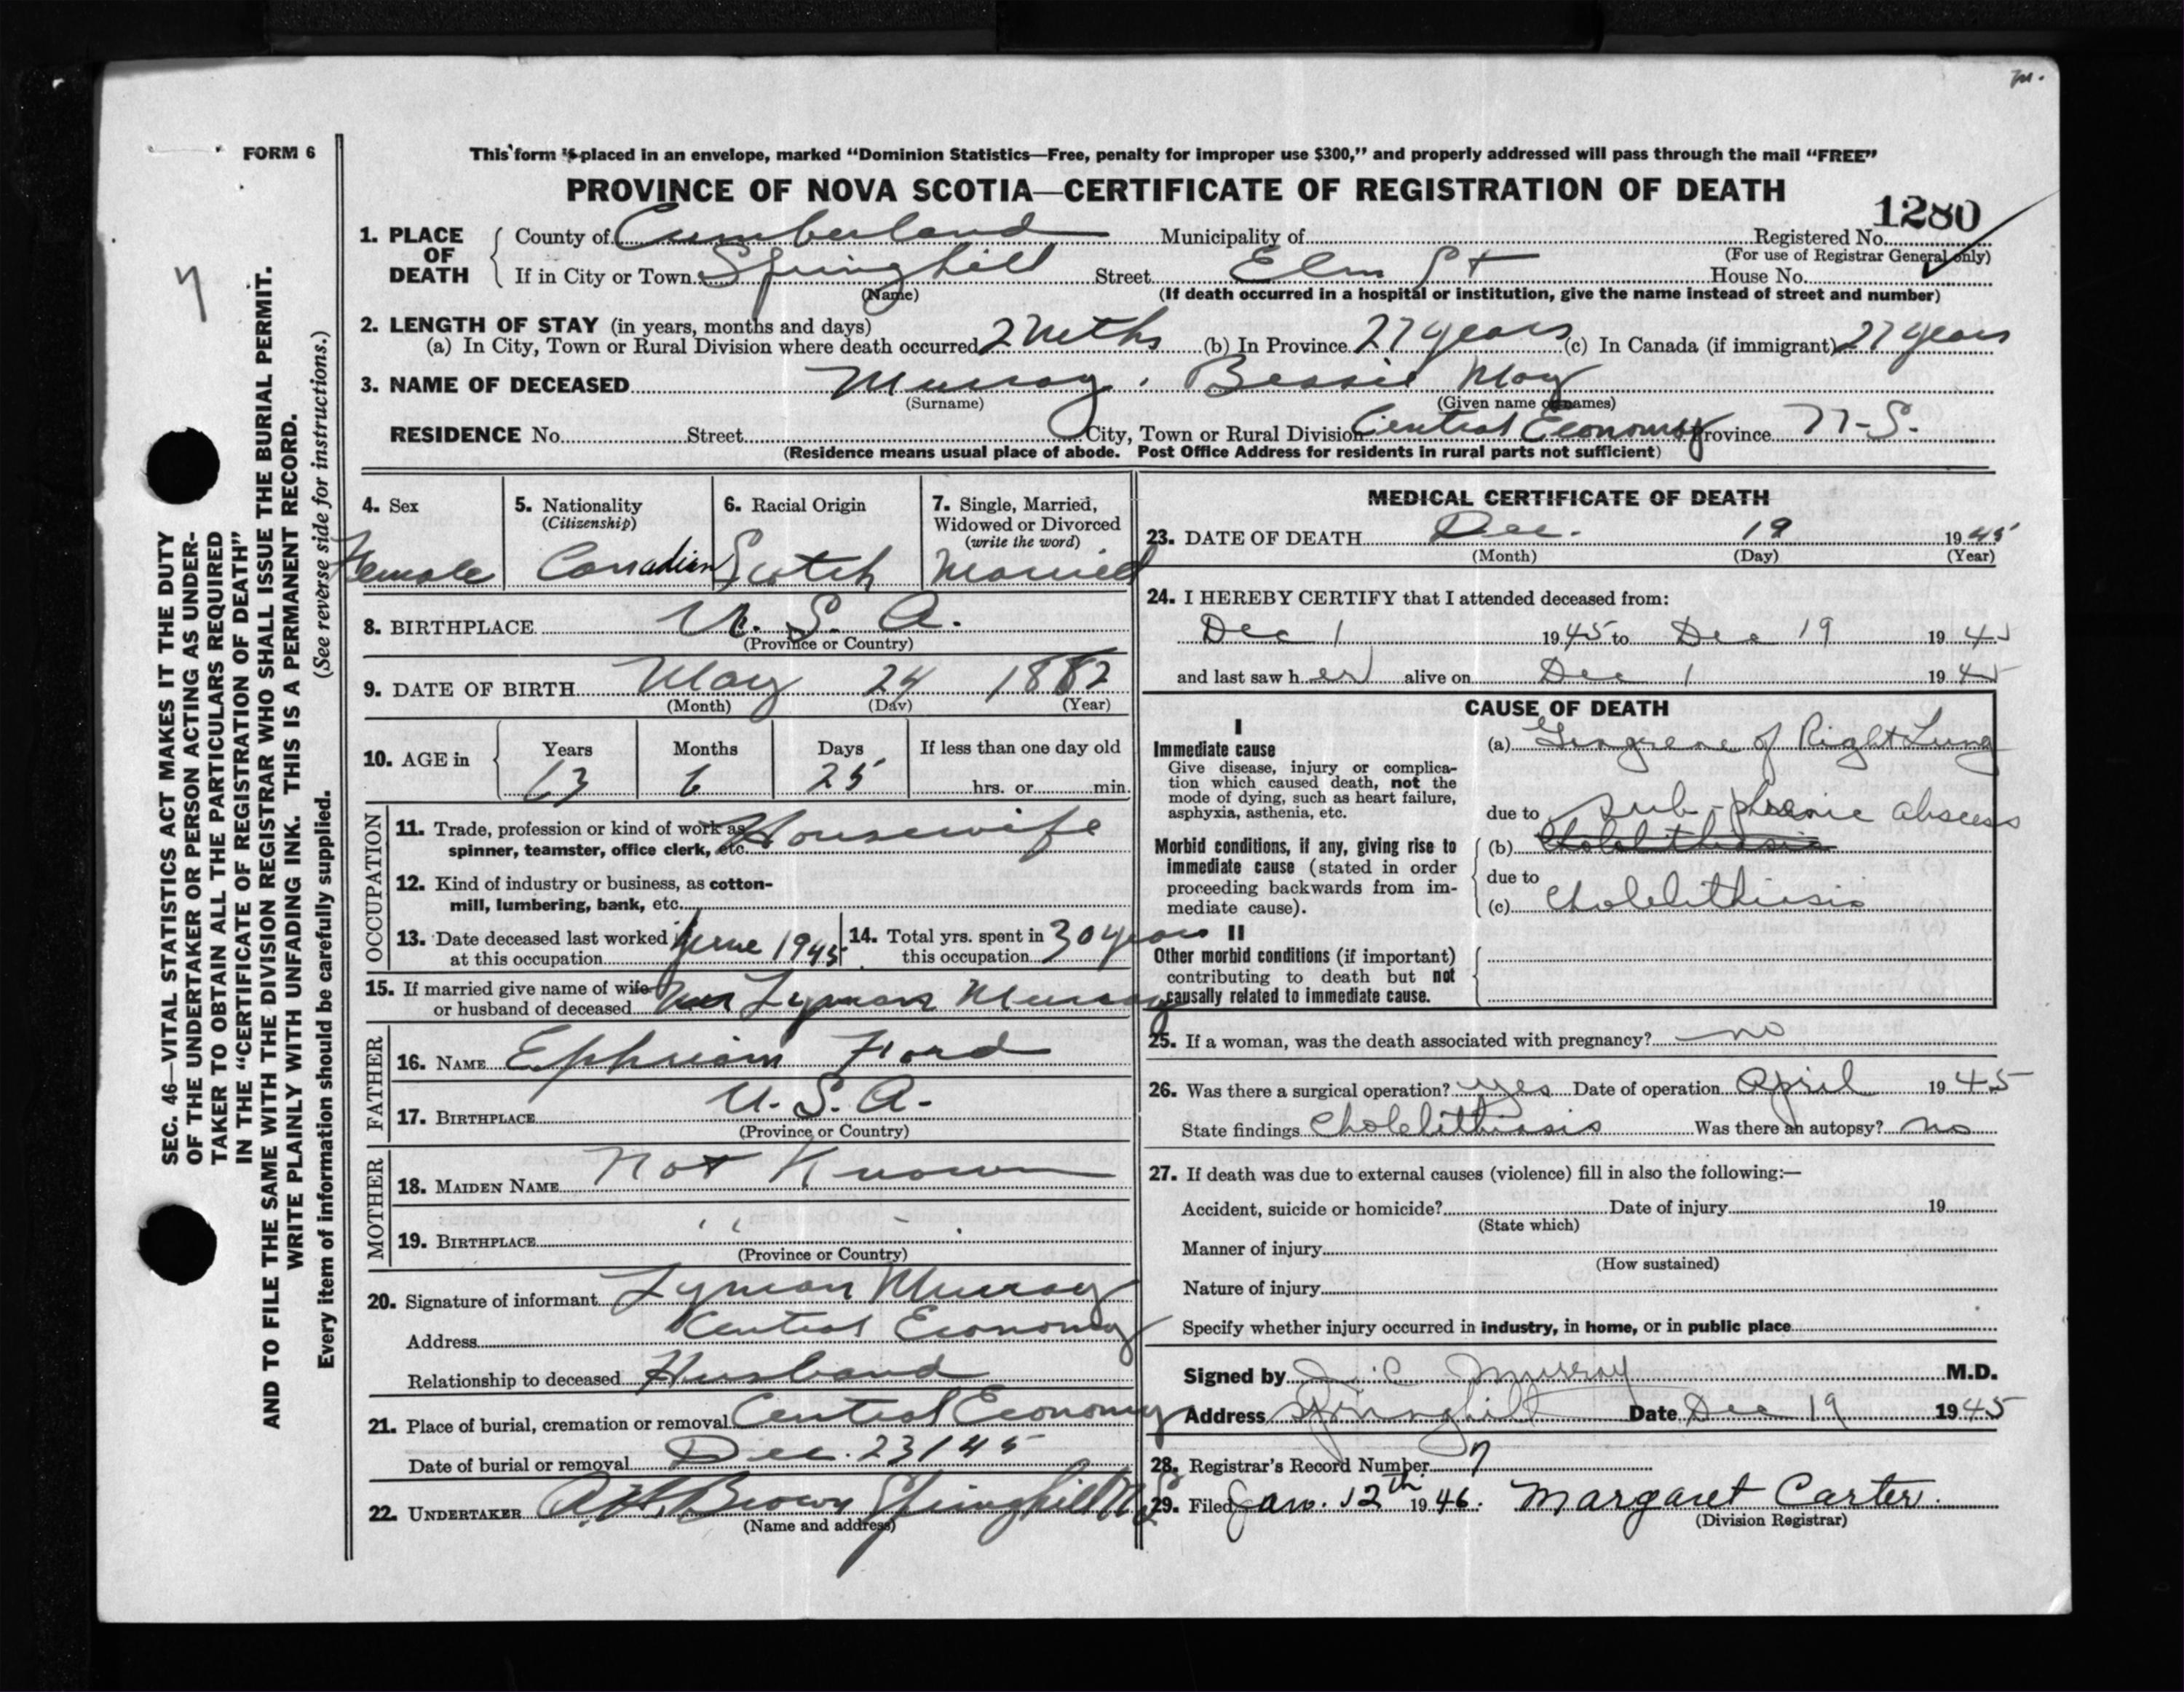 m.
FORM 6
This form if placed in an envelope, marked "Dominion Statistics—Free, penalty for improper use $300," and properly addressed will pass through the mail "FREE"
PROVINCE OF NOVA SCOTIA—CERTIFICATE OF REGISTRATION OF DEATH
1280
1. PLACE OF DEATH
County of Cumberland Municipality of Registered No.
(For use of Registrar General only)
If in City or Town Springhill Street Elm St House No.
(Name) (If death occurred in a hospital or institution, give the name instead of street and number)
2. LENGTH OF STAY (in years, months and days)
(a) In City, Town or Rural Division where death occurred 2 mths (b) In Province 27 years (c) In Canada (if immigrant) 27 years
3. NAME OF DECEASED Murray, Bessie May
(Surname) (Given name or names)
RESIDENCE No. Street City, Town or Rural Division Central Economy Province N-S.
(Residence means usual place of abode. Post Office Address for residents in rural parts not sufficient)
4. Sex
Female
5. Nationality
(Citizenship)
Canadian
6. Racial Origin
Scotch
7. Single, Married,
Widowed or Divorced
(write the word)
Married
8. BIRTHPLACE U. S. A.
(Province or Country)
9. DATE OF BIRTH May 24 1882
(Month) (Day) (Year)
10. AGE in Years Months Days If less than one day old
63 6 25 hrs. or min.
OCCUPATION
11. Trade, profession or kind of work as Housewife
spinner, teamster, office clerk, etc.
12. Kind of industry or business, as cotton-
mill, lumbering, bank, etc.
13. Date deceased last worked June 1945
at this occupation
14. Total yrs. spent in 30 years
this occupation
15. If married give name of wife
or husband of deceased Lyman Murray
FATHER
16. NAME Ephriam Ford
17. BIRTHPLACE U. S. A.
(Province or Country)
MOTHER
18. MAIDEN NAME Not Known
19. BIRTHPLACE " "
(Province or Country)
20. Signature of informant Lyman Murray
Address Central Economy
Relationship to deceased Husband
21. Place of burial, cremation or removal Central Economy
Date of burial or removal Dec. 23/45
22. UNDERTAKER A.H. Brown Springhill N.S
(Name and address)
MEDICAL CERTIFICATE OF DEATH
23. DATE OF DEATH Dec. 19 1945
(Month) (Day) (Year)
24. I HEREBY CERTIFY that I attended deceased from:
Dec 1 1945 to Dec 19 1945
and last saw her alive on Dec 1 1945
CAUSE OF DEATH
I
Immediate cause
Give disease, injury or complica-
tion which caused death, not the
mode of dying, such as heart failure,
asphyxia, asthenia, etc.
(a) Gangrene of Right Lung
due to sub-phrenic abscess
Morbid conditions, if any, giving rise to
immediate cause (stated in order
proceeding backwards from im-
mediate cause).
(b) Cholelithiasis
due to
(c) Cholelithiasis
II
Other morbid conditions (if important)
contributing to death but not
causally related to immediate cause.
25. If a woman, was the death associated with pregnancy? no
26. Was there a surgical operation? yes Date of operation April 1945
State findings Cholelithiasis Was there an autopsy? no
27. If death was due to external causes (violence) fill in also the following:—
Accident, suicide or homicide? Date of injury 19
(State which)
Manner of injury
(How sustained)
Nature of injury
Specify whether injury occurred in industry, in home, or in public place
Signed by J. C. Murray M.D.
Address Springhill Date Dec 19 1945
28. Registrar's Record Number 7
29. Filed Jan. 12th 1946. Margaret Carter.
(Division Registrar)
7
SEC. 46—VITAL STATISTICS ACT MAKES IT THE DUTY
OF THE UNDERTAKER OR PERSON ACTING AS UNDER-
TAKER TO OBTAIN ALL THE PARTICULARS REQUIRED
IN THE "CERTIFICATE OF REGISTRATION OF DEATH"
AND TO FILE THE SAME WITH THE DIVISION REGISTRAR WHO SHALL ISSUE THE BURIAL PERMIT.
WRITE PLAINLY WITH UNFADING INK. THIS IS A PERMANENT RECORD.
Every item of information should be carefully supplied. (See reverse side for instructions.)